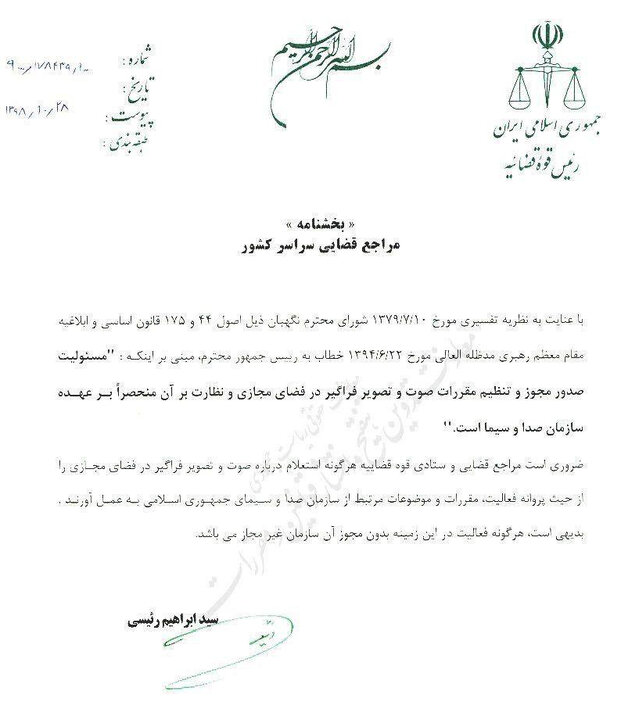 بسم الله الرحمن الرحیم
جمهوری اسلامی ایران
رئیس قوهٔ قضائیه
شماره : ۹۰۰۰/۱۷۸۴۳۹/۱۰۰
تاریخ : ۱۳۹۸/۱۰/۲۸
پیوست :
طبقه‌بندی :
« بخشنامه »
مراجع قضایی سراسر کشور
با عنایت به نظریه تفسیری مورخ ۱۳۷۹/۷/۱۰ شورای محترم نگهبان ذیل اصول ۴۴ و ۱۷۵ قانون اساسی و ابلاغیه
مقام معظم رهبری مدظله العالی مورخ ۱۳۹۴/۶/۲۲ خطاب به رییس جمهور محترم، مبنی بر اینکه : "مسئولیت
صدور مجوز و تنظیم مقررات صوت و تصویر فراگیر در فضای مجازی و نظارت بر آن منحصراً بر عهده
سازمان صدا و سیما است."
ضروری است مراجع قضایی و ستادی قوه قضاییه هرگونه استعلام درباره صوت و تصویر فراگیر در فضای مجازی را
از حیث پروانه فعالیت، مقررات و موضوعات مرتبط از سازمان صدا و سیمای جمهوری اسلامی به عمل آورند .
بدیهی است، هرگونه فعالیت در این زمینه بدون مجوز آن سازمان غیر مجاز می باشد.
سید ابراهیم رئیسی